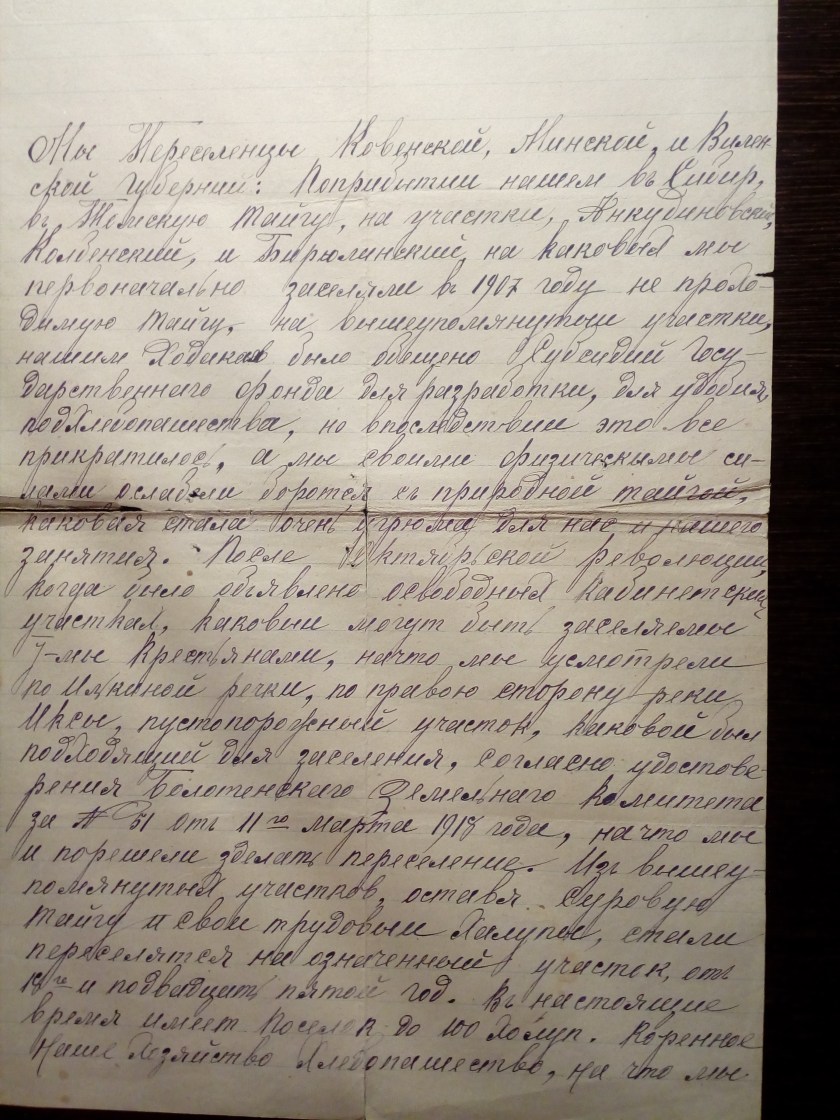 Мы Переселенцы Ковенской, Минской, и Вилен-
ской губерний: Поприбытии нашем въ Сибир,
въ Томскую тайгу, на участки, Анкудиновский,
Колбенский, и Бирюлинский, на каковых мы
первоначально заселяли въ 1907 году не прохо-
димую тайгу, на вышеупомянутыи участки,
нашим Ходакам было обещено Субсидий Госу-
дарственнаго фонда для разработки, для удобия,
подхлебопашества, но впоследствии это все
прикратилось, а мы своими физическимы си-
лами ослабели боротся съ природной тайгой,
каковая стала очень угрюма для нас и нашего
занятия. После Октябрьской революции,
когда было объявлено освободных кабинетских
участках, каковыи могут быть заселяемы
крестьянами, начто мы усмотрели
по Илкиной речки, по правою сторону реки
Иксы, пустопорожный участок, каковой был
подходящий для заселения, согласно удостове-
рения Болотенскаго Земельнаго комитета
за № 51 отъ 11го марта 1918 года, на что мы
и порешели зделать переселение. Изъ вышеу-
помянутых участков, оставя Суровую
тайгу и свои трудовыи Халупы, стали
переселятся на означенный участок, отъ
18го и подвадцать пятой год. Въ настоящие
время имеет Поселок до 100 Холуп. Коренное
Наше Хозяйство Хлебопашество, на что мы